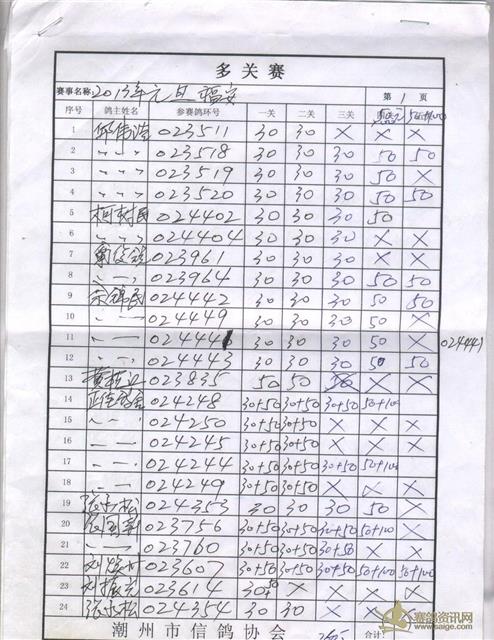 多关赛
赛事名称: 2013年元旦 福安 第 1 页
序号 鸽主姓名 参赛鸽环号 一关 二关 三关 50+100
1 邱伟浩 023511 30 30 × × ×
2 〃 〃 〃 023518 30 30 30 50 50
3 〃 〃 〃 023519 30 30 30 50 ×
4 〃 〃 〃 023520 30 30 30 50 50
5 024402 30 30 30 50
6 〃 〃 〃 024404 30 30 30 × ×
7 023961 30 30 30 × ×
8 023964 30 30 30 50 50
9 024442 30 30 30 50 50
10 024449 30 30 30 50 ×
11 024441 30 30 30 50 × 024441
12 024443 30 30 30 50 50
13 023835 50 50 × ×
14 024248 30+50 30+50 30+50 50+100
15 024250 30+50 30+50 × × ×
16 024245 30+50 30+50 × × ×
17 024244 30+50 30+50 30+50 50+100
18 024249 30+50 30+50 × × ×
19 024353 30 30 30 50 ×
20 023756 30+50 30+50 30+50 50+100 ×
21 023760 30+50 30+50 30+50 × ×
22 023607 30+50 30+50 30+50 50+100 50+100
23 刘振 023614 30+50 × × × ×
24 024354 30 30 × × ×
潮州市信鸽协会 合计:
赛鸽资讯网
www.saige.com